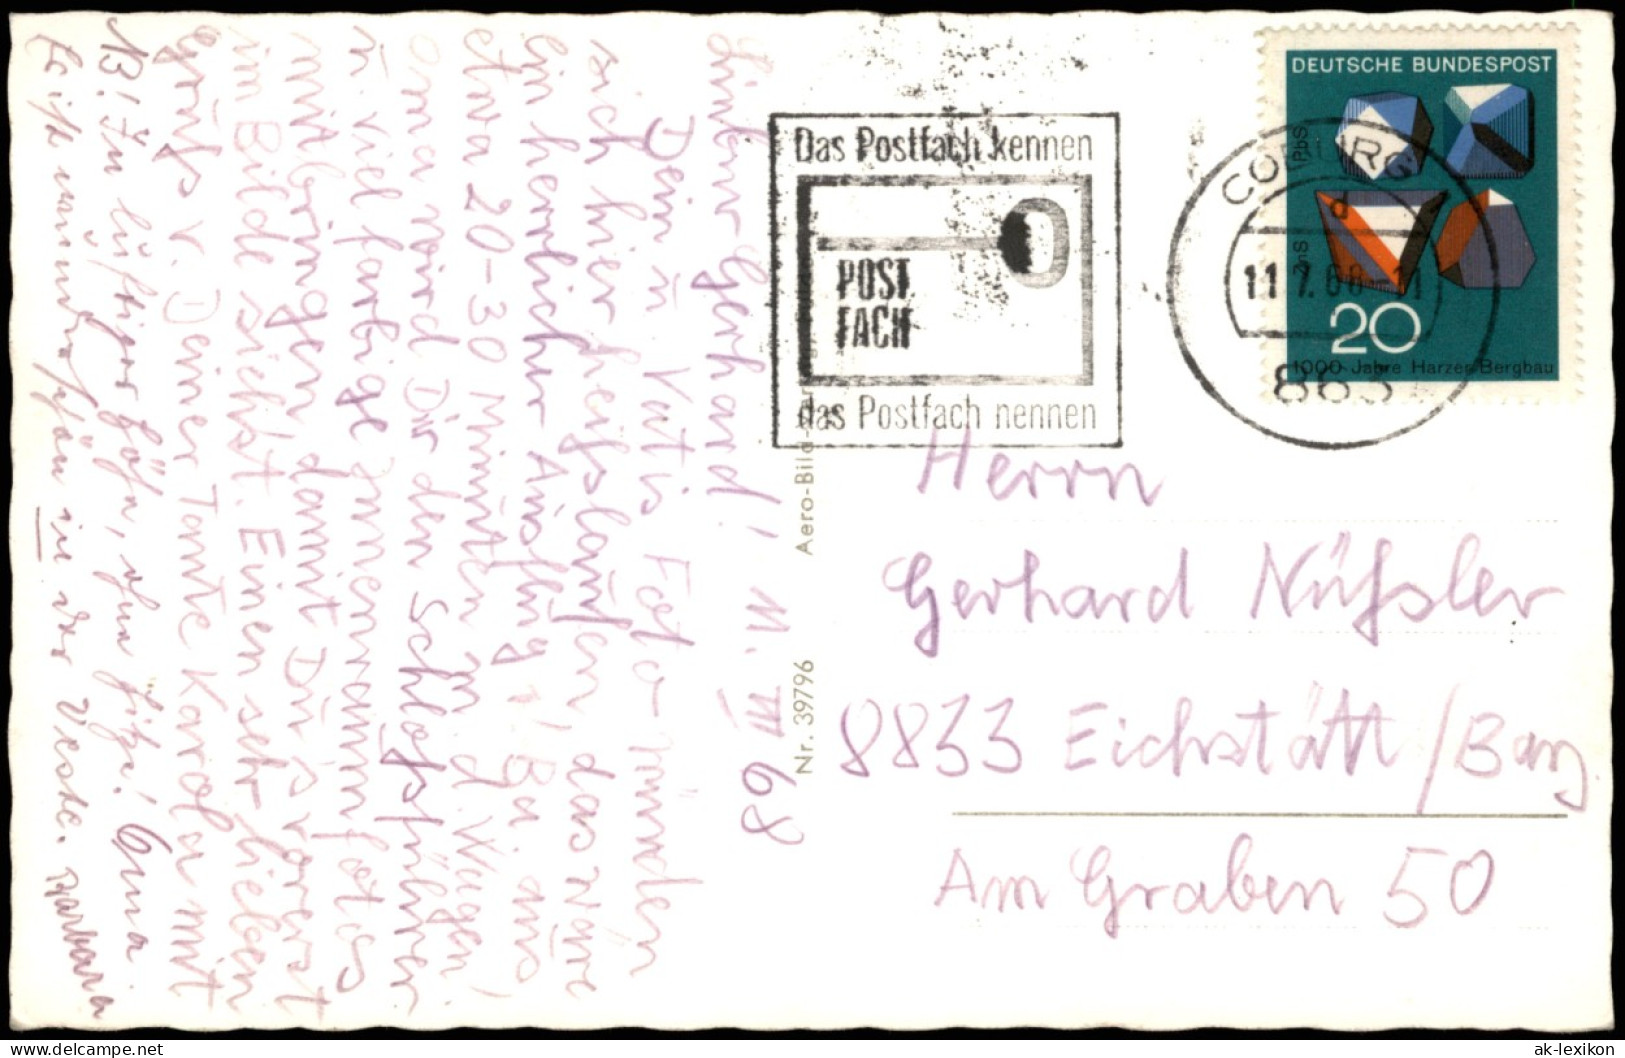 Lieber Gerhard! 11. VII 68
Dein u. Vatis Foto-münden
sich hier heißlaufen, das wäre
ein herrlicher Ausflug v. Ba aus,
etwa 20-30 Minuten m. d. Wagen!
Oma wird Dir den Schloßführer
u. viel farbige Innenraumfotos
mitbringen damit Du's vorerst
im Bilde siehst. Einen sehr lieben
Gruß v. Deiner Tante Karola mit
NB! In luftiger Höhe, ohne Hitze! Oma
Es ist wunderschön in der Veste. Barbara
Das Postfach kennen
POST
FACH
das Postfach nennen
COBURG
d
11.7.68-11
863
DEUTSCHE BUNDESPOST
PbS
ZnS
20
1000 Jahre Harzer Bergbau
Aero-Bild
Nr. 39796
Herrn
Gerhard Nüßler
8833 Eichstätt/Bay
Am Graben 50
delcampe.net
ak-lexikon